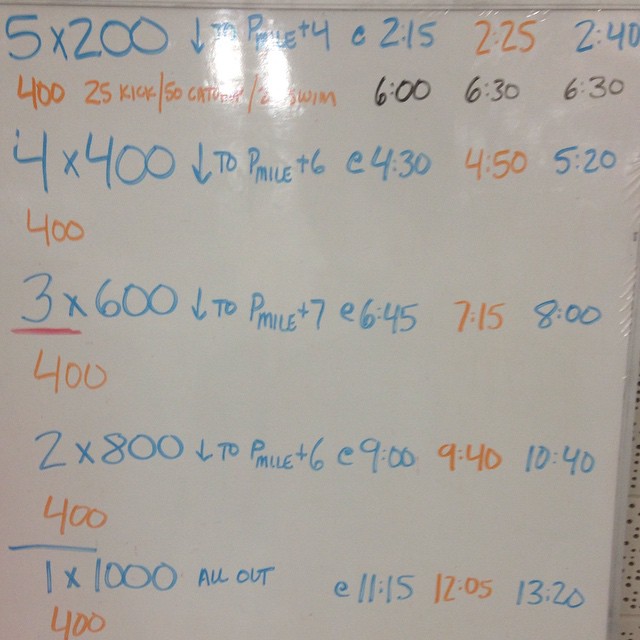 5x200 ↓ TO PMILE+4 @ 2:15 2:25 2:40
400 25 KICK/50 CATCHUP/25 SWIM 6:00 6:30 6:30
4x400 ↓ TO PMILE+6 @ 4:30 4:50 5:20
400
3x600 ↓ TO PMILE+7 @ 6:45 7:15 8:00
400
2x800 ↓ TO PMILE+6 @ 9:00 9:40 10:40
400
1x1000 ALL OUT @ 11:15 12:05 13:20
400